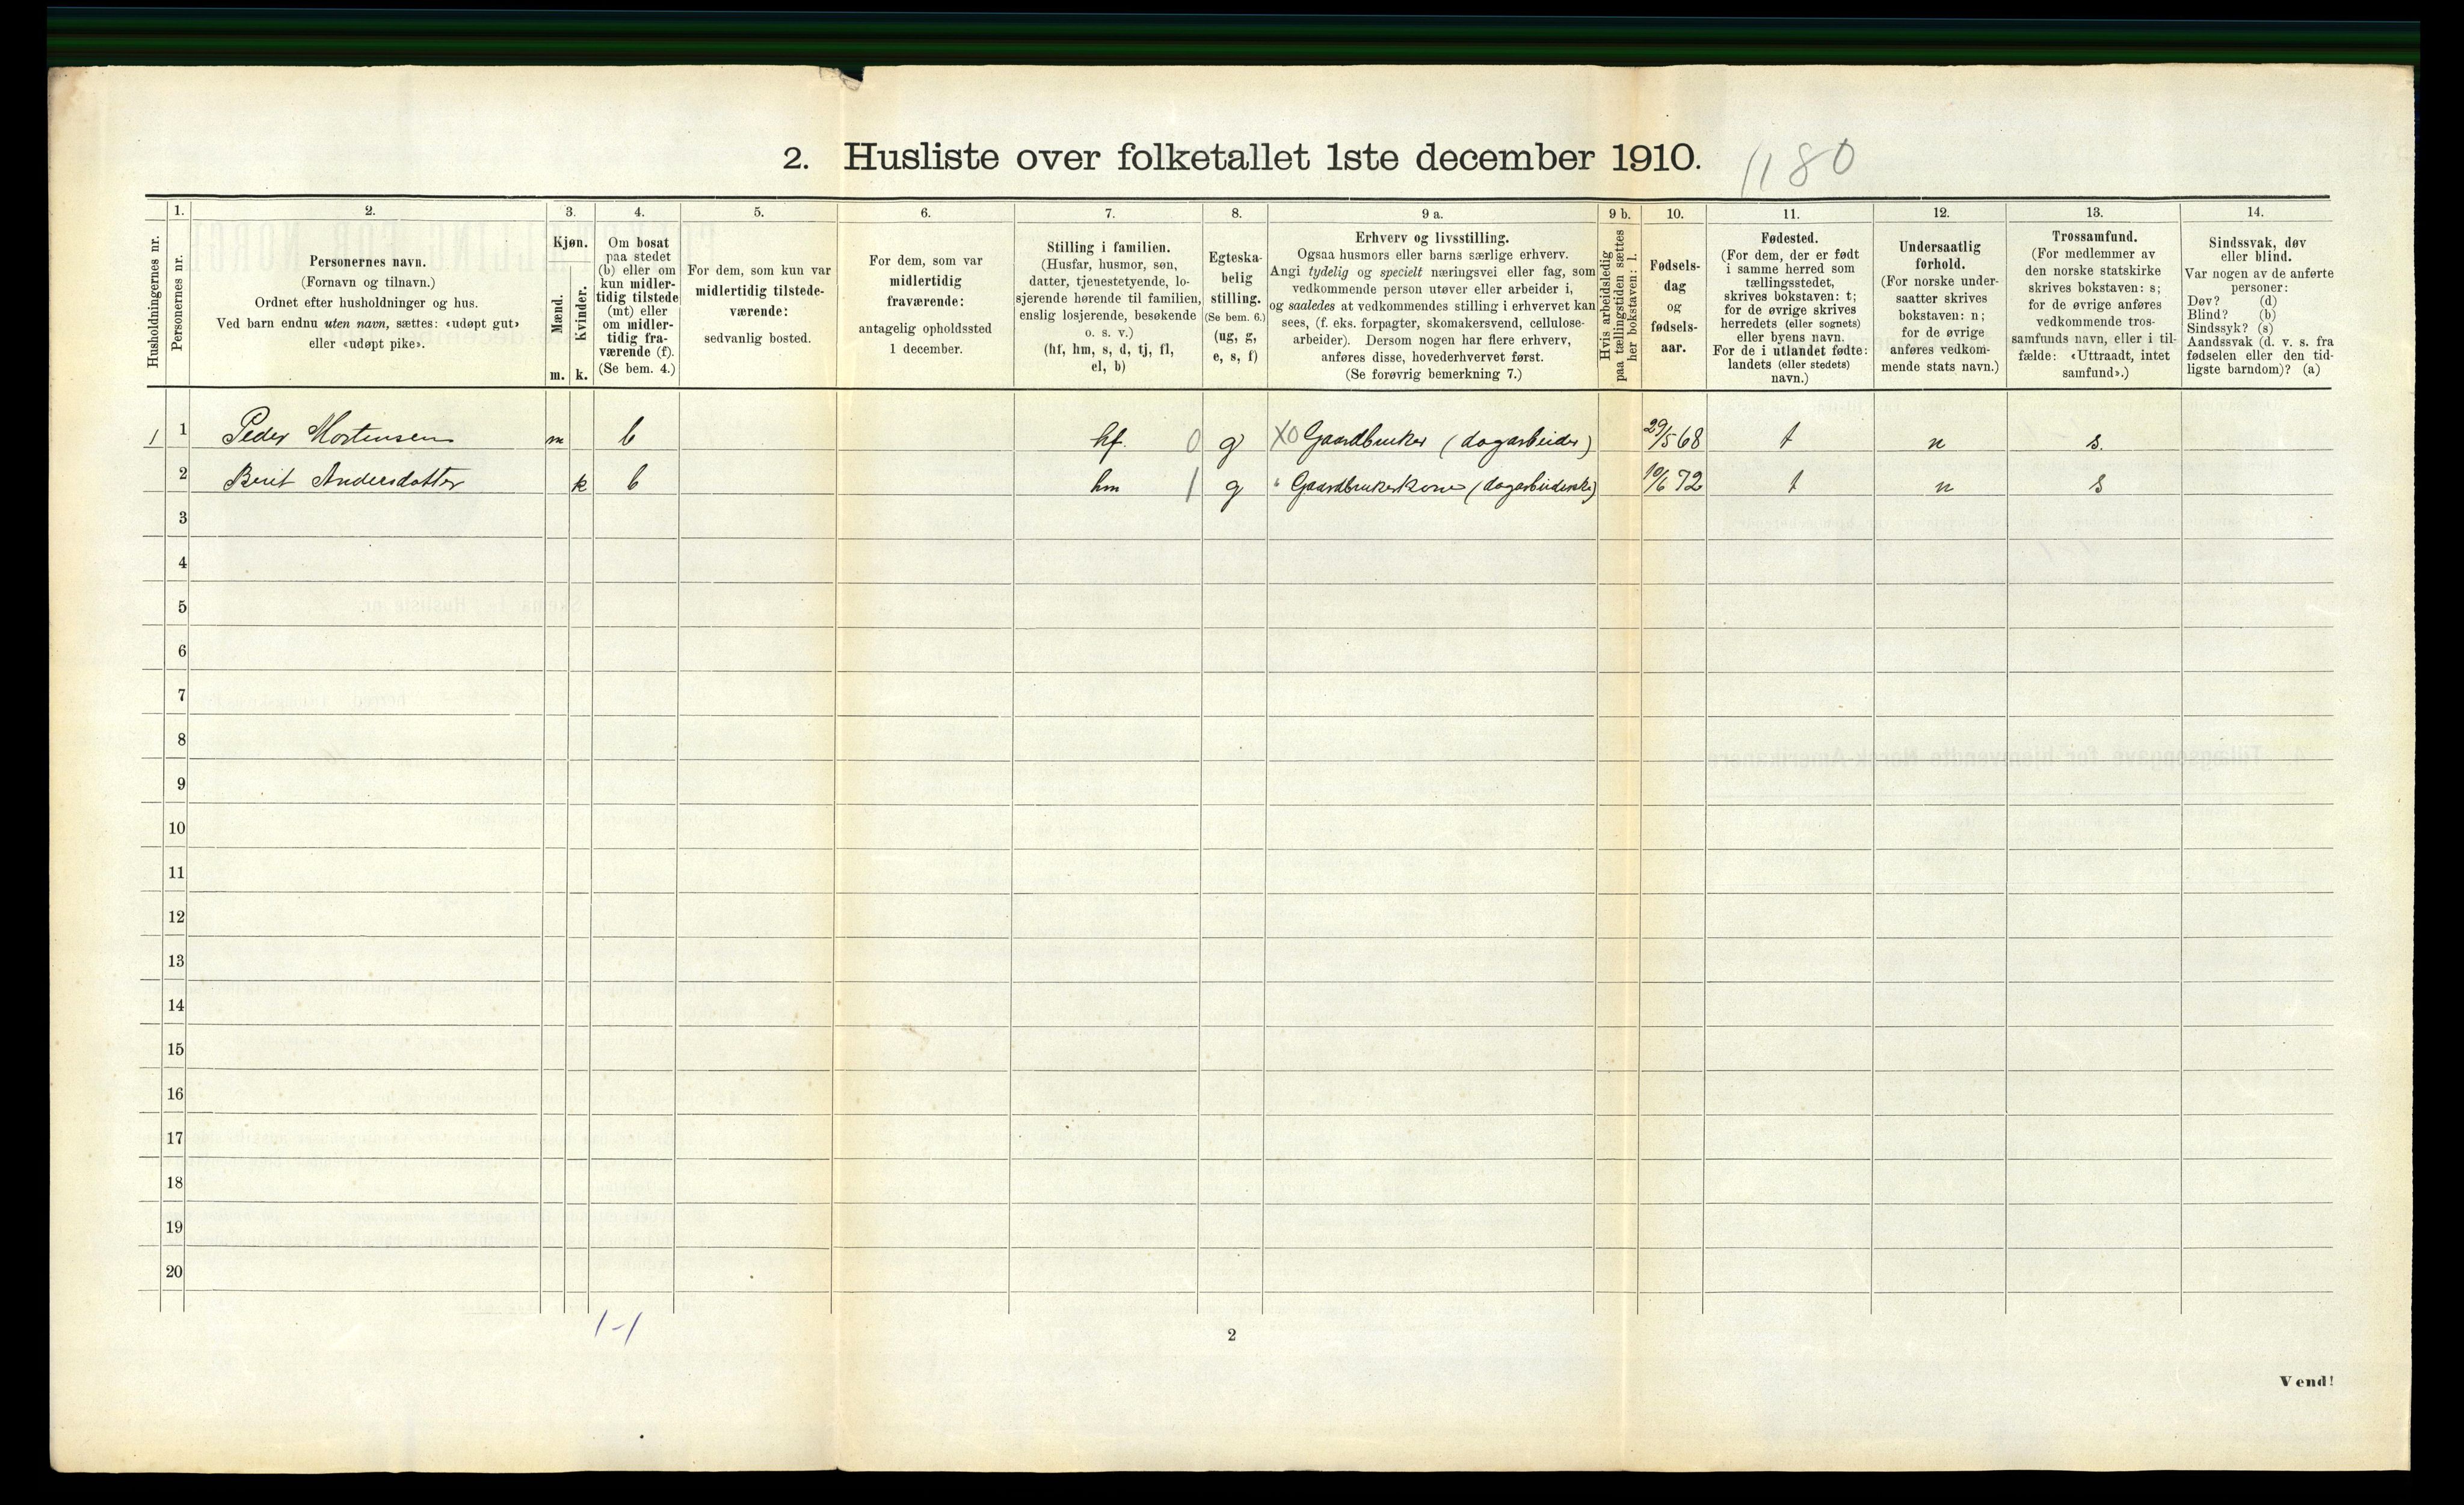 2. Husliste over folketallet 1ste december 1910.
1180
Husholdningernes nr.
1.
Personernes nr.
2.
Personernes navn.
(Fornavn og tilnavn.)
Ordnet efter husholdninger og hus.
Ved barn endnu uten navn, sættes: «udøpt gut»
eller «udøpt pike».
3.
Kjøn.
Mænd.
Kvinder.
m. k.
4.
Om bosat
paa stedet
(b) eller om
kun midler-
tidig tilstede
(mt) eller
om midler-
tidig fra-
værende (f).
(Se bem. 4.)
5.
For dem, som kun var
midlertidig tilstede-
værende:
sedvanlig bosted.
6.
For dem, som var
midlertidig
fraværende:
antagelig opholdssted
1 december.
7.
Stilling i familien.
(Husfar, husmor, søn,
datter, tjenestetyende, lo-
sjerende hørende til familien,
enslig losjerende, besøkende
o. s. v.)
(hf, hm, s, d, tj, fl,
el, b)
8.
Egteska-
belig
stilling.
(Se bem. 6.)
(ug, g,
e, s, f)
9 a.
Erhverv og livsstilling.
Ogsaa husmors eller barns særlige erhverv.
Angi tydelig og specielt næringsvei eller fag, som
vedkommende person utøver eller arbeider i,
og saaledes at vedkommendes stilling i erhvervet kan
sees, (f. eks. forpagter, skomakersvend, cellulose-
arbeider). Dersom nogen har flere erhverv,
anføres disse, hovederhvervet først.
(Se forøvrig bemerkning 7.)
9 b.
Hvis arbeidsledig
paa tællingstiden sættes
her bokstaven: l.
10.
Fødsels-
dag
og
fødsels-
aar.
11.
Fødested.
(For dem, der er født
i samme herred som
tællingsstedet,
skrives bokstaven: t;
for de øvrige skrives
herredets (eller sognets)
eller byens navn.
For de i utlandet fødte:
landets (eller stedets)
navn.)
12.
Undersaatlig
forhold.
(For norske under-
saatter skrives
bokstaven: n;
for de øvrige
anføres vedkom-
mende stats navn.)
13.
Trossamfund.
(For medlemmer av
den norske statskirke
skrives bokstaven: s;
for de øvrige anføres
vedkommende tros-
samfunds navn, eller i til-
fælde: «Uttraadt, intet
samfund».)
14.
Sindssvak, døv
eller blind.
Var nogen av de anførte
personer:
Døv? (d)
Blind? (b)
Sindssyk? (s)
Aandssvak (d. v. s. fra
fødselen eller den tid-
ligste barndom)? (a)
1 1 Peder Mortensen m b hf. 0 g X0 Gaardbruker (dagarbeider) 29/5 68 t n s.
2 Berit Andersdatter k b hm 1 g " Gaardbrukerkone (dagarbeiderske) 10/6 72 t n s
3
4
5
6
7
8
9
10
11
12
13
14
15
16
17
18
19
20
1-1
2
Vend!